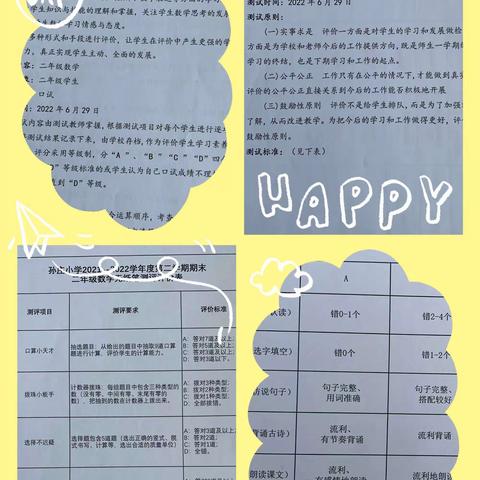 学生知识与技能的理解和掌握，关注学生数学思考的发展
学习情感与态度。
多种形式和手段进行评价，让学生在评价中产生更强的学
力，真正实现学生主动、全面的发展。
容：二年级数学
：二年级学生
口试
：2022 年 6 月 29 日
试内容由测试教师掌握，根据测试项目对每个学生进行逐
测试结果记录下来，由学校存档，作为评价学生学习素养
评分采用等级制，分“A”、“B”“C”“D”四
“D”等级标准的或学生认为自己口试成绩不理
到“D”等级。
合运算顺序，考查
测试时间：2022 年 6 月 29 日
测试原则：
（一）实事求是 评价一方面是对学生的学习和发展做检
方面是为学校和老师今后的工作提供方向，既是师生一学期
学习的终结，也是下学期学习和工作的起点。
（二）公平公正 工作只有在公平的情况下，才能做到真实
评价的公平公正直接关系到今后的工作能否积极地开展
（三）鼓励性原则 评价不是给学生排队，而是为了加强
解，从而改进教学。为把今后的学习和工作做得更好，评
鼓励性原则。
测试标准：（见下表）
HAPPY
小学2021-2022学年度第二学期期末
二年级数学无纸笔测评评价表
测评项目 测评要求 评价标准
口算小天才
抽选题目：从给出的题目中抽取9道口算
题进行计算，评价学生的计算能力。
A：答对7道及以上
B：答对5道及以上
C：答对3道及以上
D：答对3道以下。
拨珠小能手
计数器拨珠：每组题目中包含三种类型的
数（没有零、中间有零、末尾有零的
数），把抽到的数在计数器上拨出来。
A：拨对3种类型；
B：拨对2种类型；
C：拨对1种类型；
D：全部拨错。
选择不迟疑
选择题包含5道题（选出正确的竖式、脱
式书写、计算等，选出合适的质量单位）
A：答对3道及以上
B：答对2道；
C：答对1道；
D：全错。
A
认读） 错0-1个 错2-4个
选字填空） 错0个 错1-2个
说句子） 句子完整、
用词准确
句子完整、
搭配较好
背诵古诗） 流利、
有节奏背诵
流利背诵
朗读课文） 流利、
有感情地朗读
流利地朗